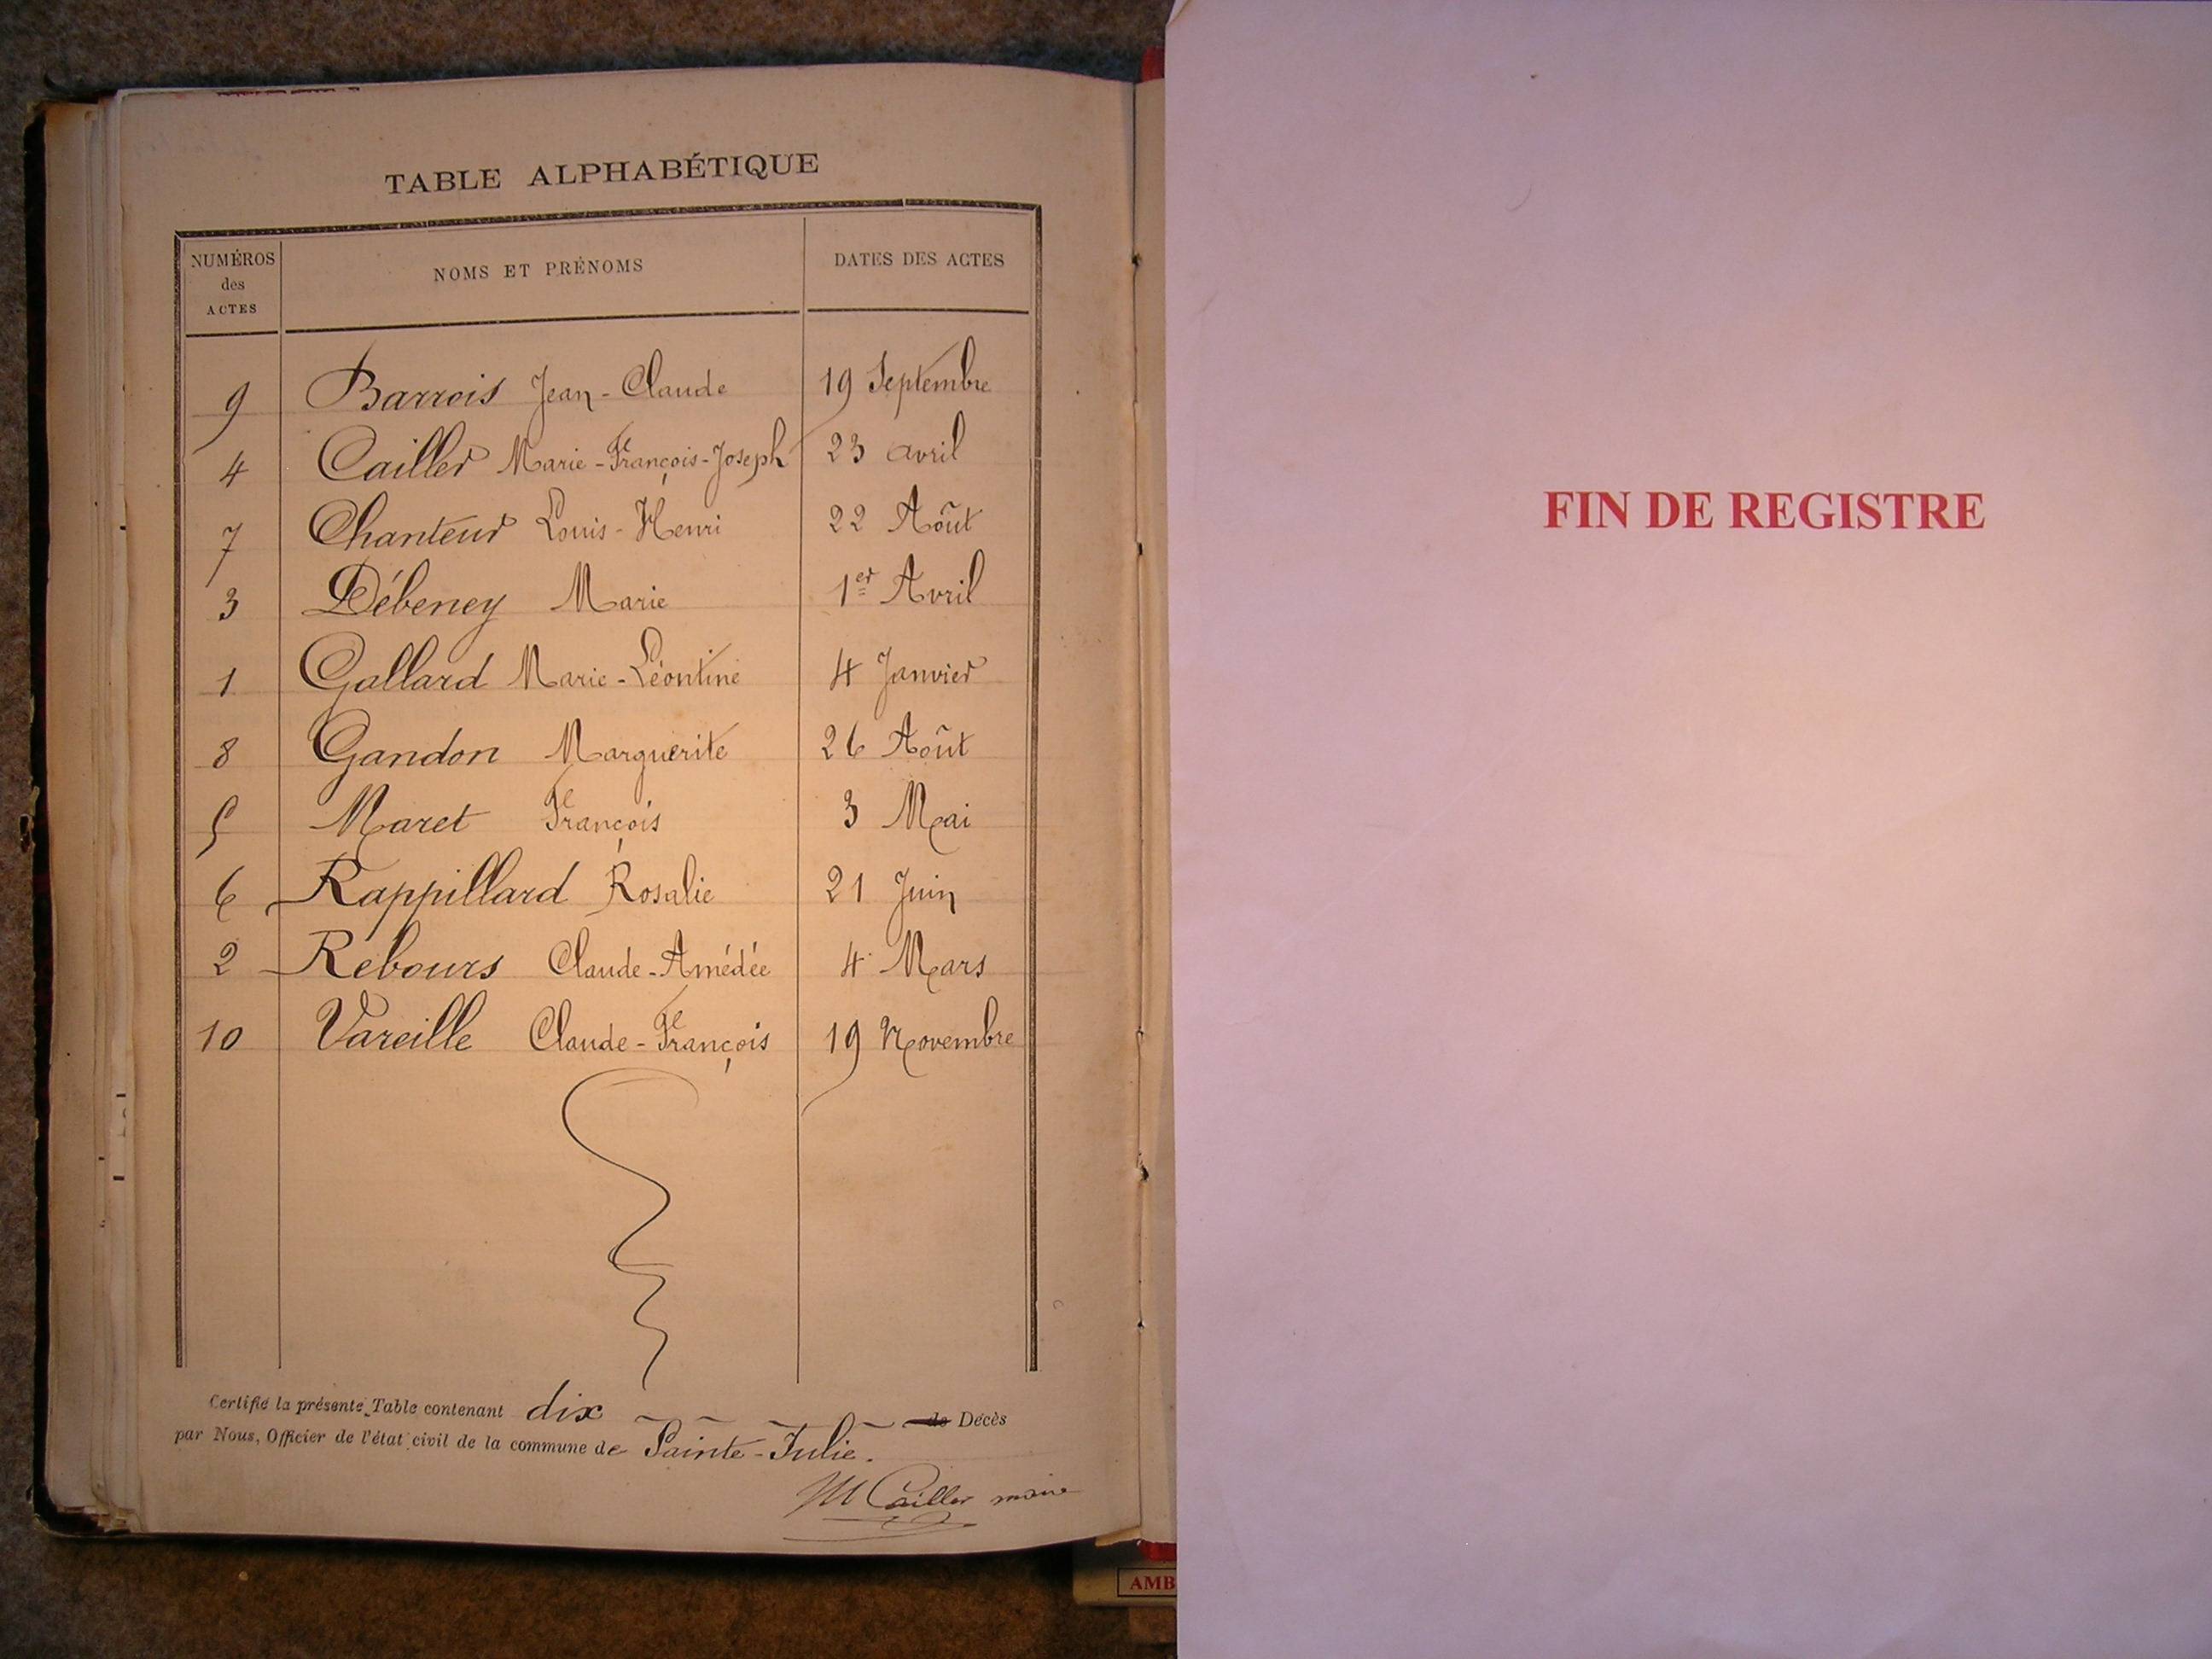 TABLE ALPHABÉTIQUE
NUMÉROS des ACTES NOMS ET PRÉNOMS DATES DES ACTES
9 Barrois Jean-Claude 19 Septembre
4 Cailler Marie-François-Joseph 23 avril
7 Chanteur Louis-Henri 22 Août
3 Débeney Marie 1er Avril
1 Gallard Marie-Léontine 4 Janvier
8 Gandon Marguerite 26 Août
5 Maret François 3 Mai
6 Rappillard Rosalie 21 Juin
2 Rebours Claude-Amédée 4 Mars
10 Vareille Claude-François 19 Novembre
Certifié la présente Table contenant dix de Décès
par Nous, Officier de l'état civil de la commune de Sainte-Julie.
M Cailler maire
FIN DE REGISTRE
AMB